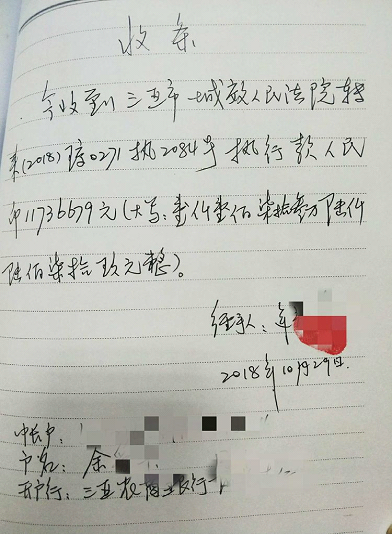 收条
今收到三亚市城郊人民法院转
来(2018)琼0271执2084号执行款人民
币11736679元(大写:壹仟壹佰柒拾叁万陆仟
陆佰柒拾玖元整)。
经手人:
2018年10月29日
户名:余
开户行:三亚农商